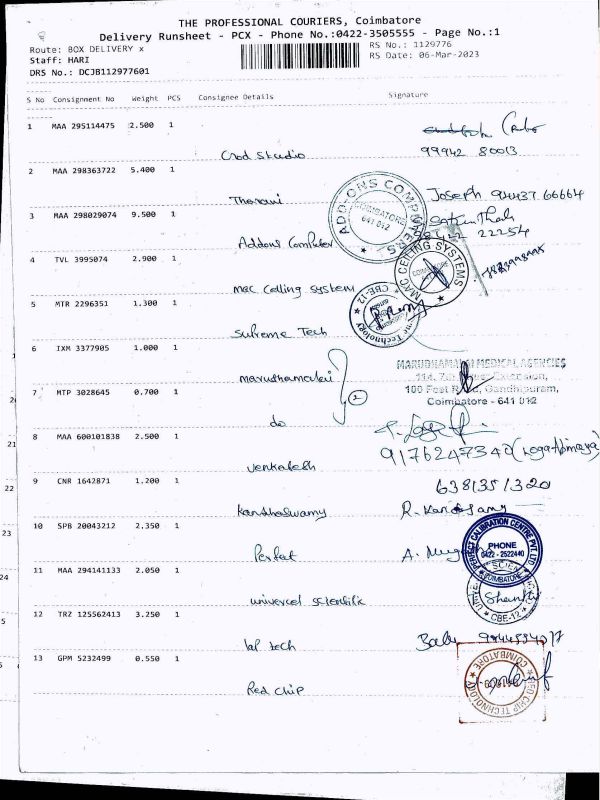 THE PROFESSIONAL COURIERS, Coimbatore
Delivery Runsheet - PCX - Phone No.:0422-3505555 - Page No.:1
Route: BOX DELIVERY x
RS No.: 1129776
Staff: HARI
RS Date: 06-Mar-2023
DRS No.: DCJB112977601
S No Consignment No Weight PCS Consignee Details Signature
1 MAA 295114475 2.500 1
Crod Studio 99942 80013
2 MAA 298363722 5.400 1
Joseph 94437 66664
3 MAA 298029074 9.500 1
22254
Addons Computer
ADD-ONS COMPUTERS
COIMBATORE
641 012
4 TVL 3995074 2.900 1
mac ceiling system
MAC CEILING SYSTEMS
COIMBATORE
5 MTR 2296351 1.300 1
Supreme Tech
CBE-12
6 IXM 3377905 1.000 1
marudhamalai
MARUDHAMALAI MEDICAL AGENCIES
100 Feet Road, Gandhipuram,
Coimbatore - 641 012
7 MTP 3028645 0.700 1
2
do
8 MAA 600101838 2.500 1
9176247340
venkatesh
9 CNR 1642871 1.200 1
6381351320
Kandhaswamy R. Kandasamy
10 SPB 20043212 2.350 1
Perfect
PERFECT CALIBRATION CENTRE PVT. LTD
PHONE
0422 - 2522440
COIMBATORE
11 MAA 294141133 2.050 1
univercel scientific
Shanthi
CBE-12
12 TRZ 125562413 3.250 1
lab tech
13 GPM 5232499 0.550 1
Red chip
RED CHIP TECHNOLOGY
COIMBATORE
20
21
22
23
24